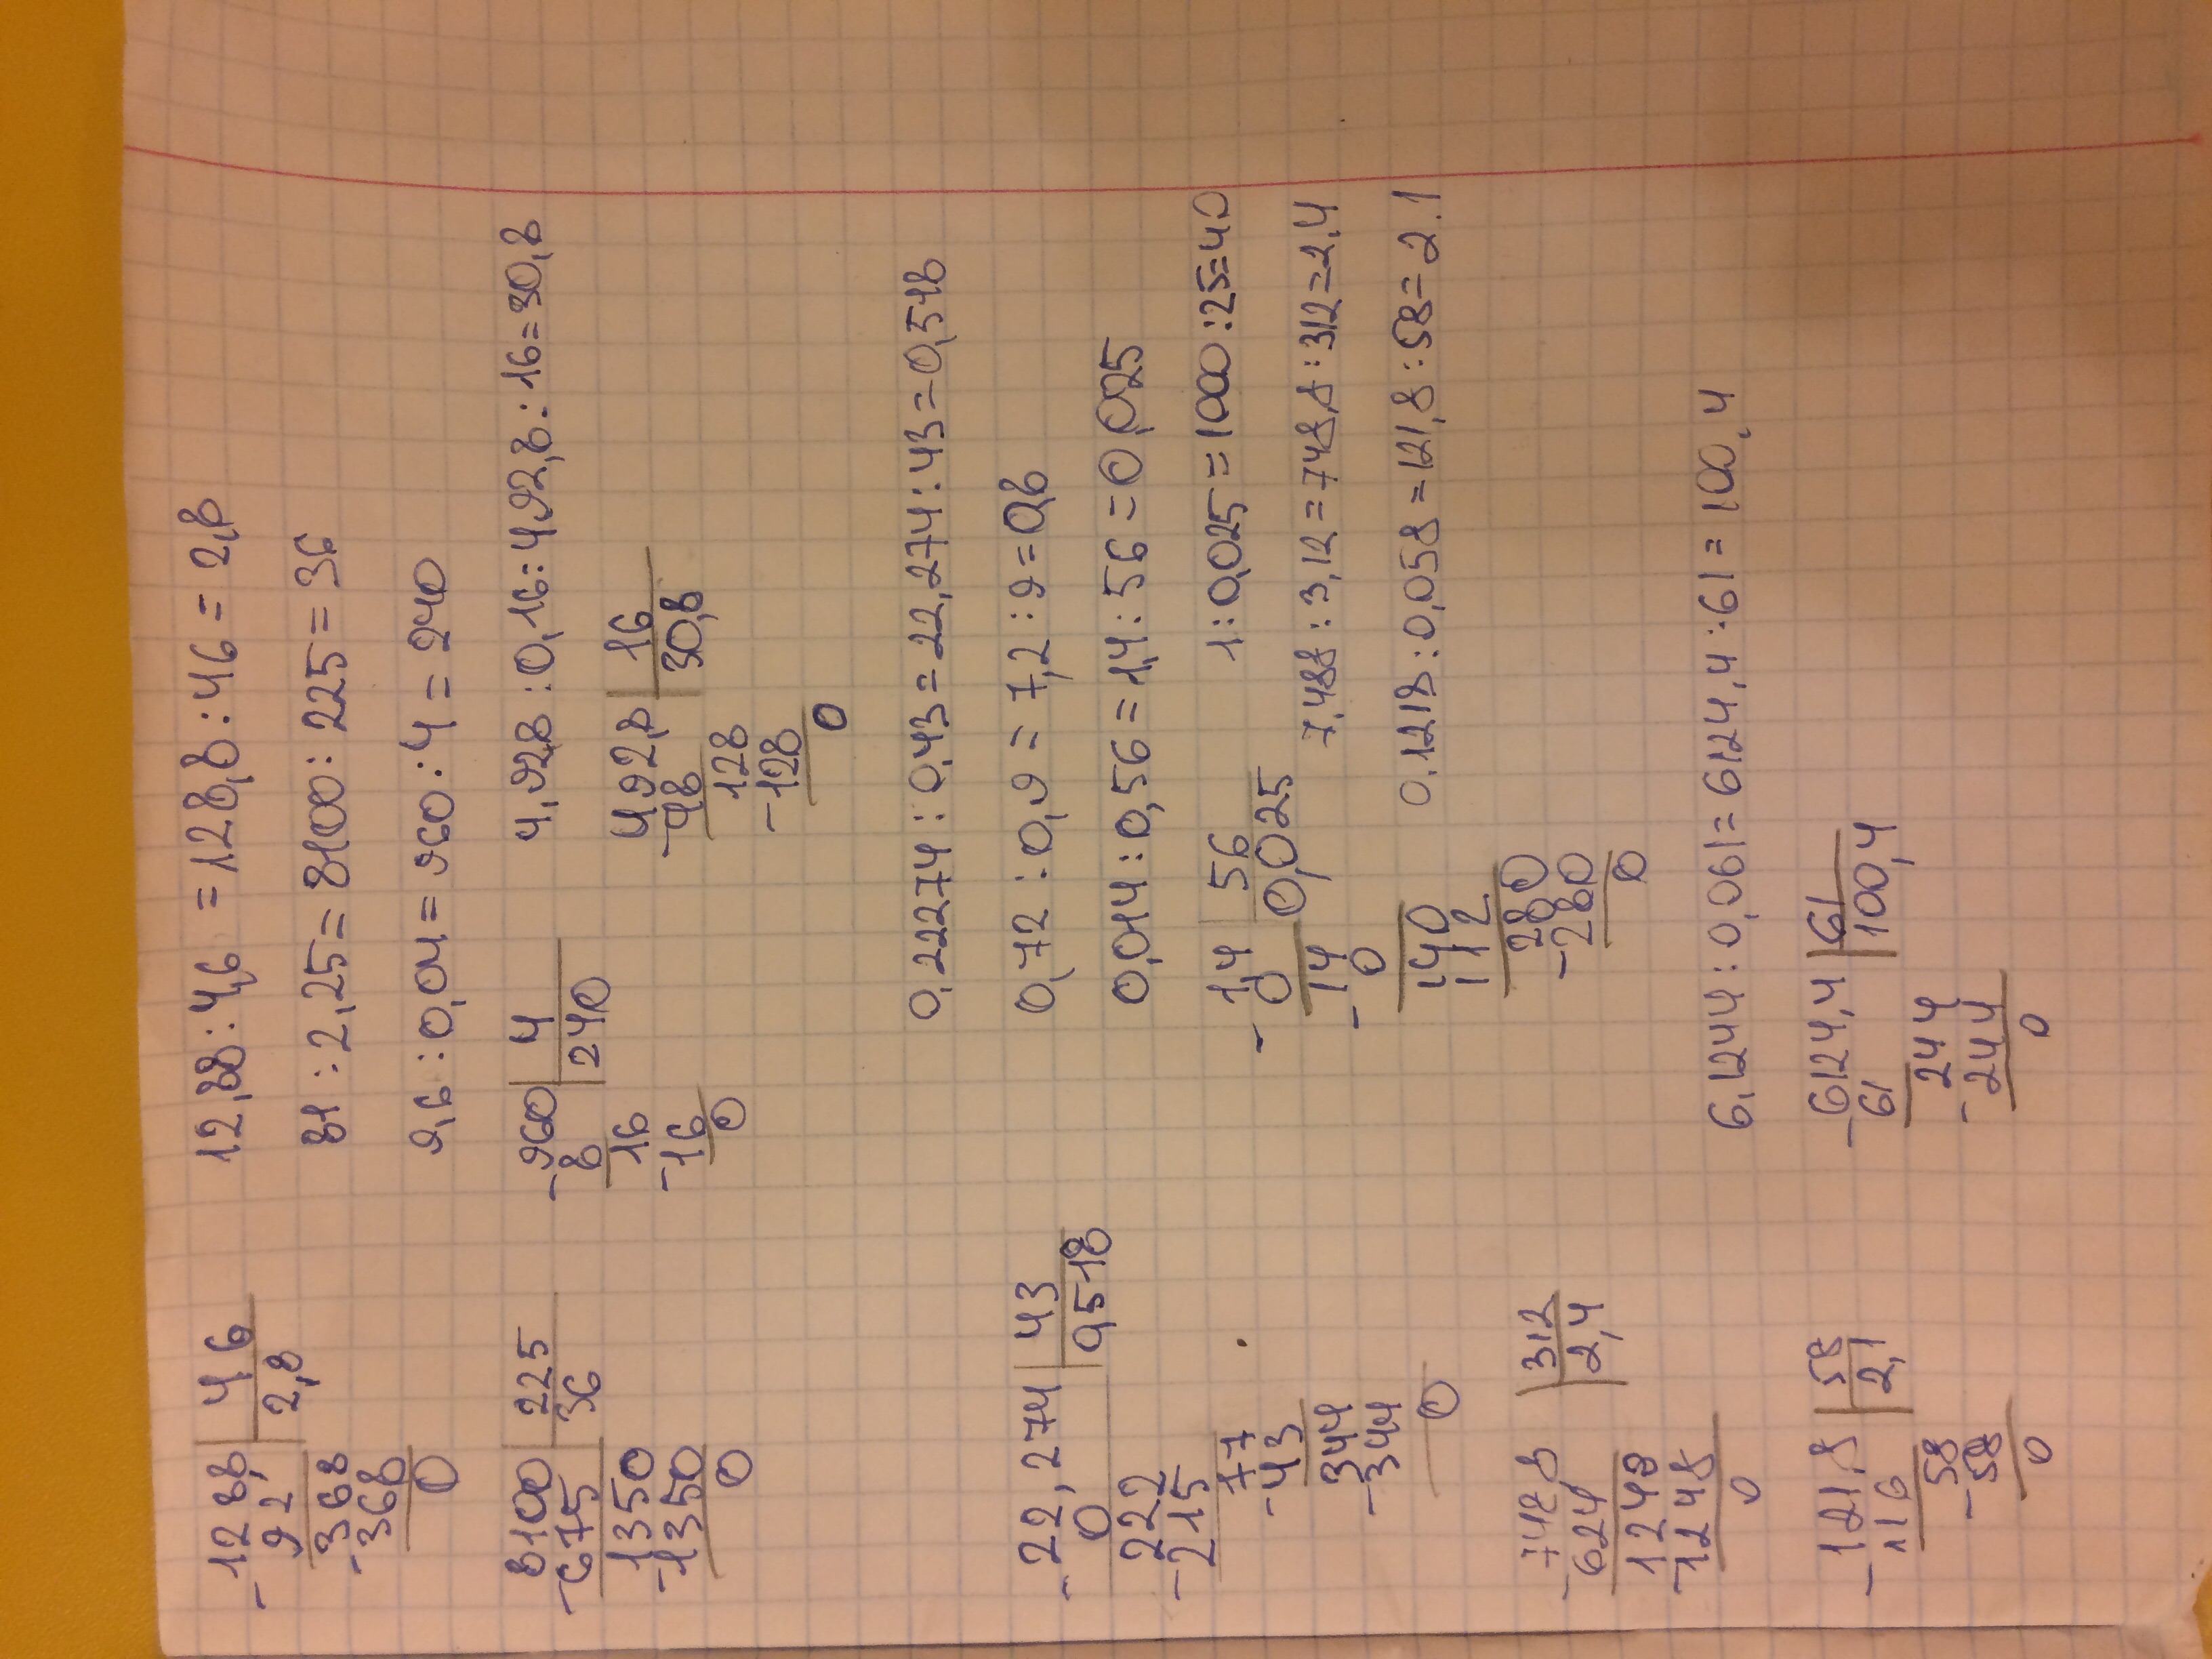 12,88:4,6 = 128,8:46=2,8
81:2,25=8100:225=36
9,6:0,04=960:4=240
4,928:0,16:492,8:16=30,8
-128,8 46
92 2,8
368
-368
0
8100 225
-675 36
1350
-1350
0
-960 4
8 240
16
-16
0
492,8 16
-48 30,8
128
-128
0
0,22274:0,43=22,274:43=0,518
0,72:0,9=7,2:9=0,8
0,014:0,56=1,4:56=0,025
1:0,025=1000:25=40
7,488:3,12=748,8:312=2,4
0,1218:0,058=121,8:58=2.1
-22,274 43
0 0,518
222
-215
77
-43
344
-344
0
-1,4 56
0 0,025
14
-0
140
112
280
-280
0
-748 8 312
624 2,4
1248
-1248
0
6,1244:0,061=6124,4:61=100,4
-121,8 58
116 2,1
58
-58
0
-6124,4 61
61 100,4
244
-244
0